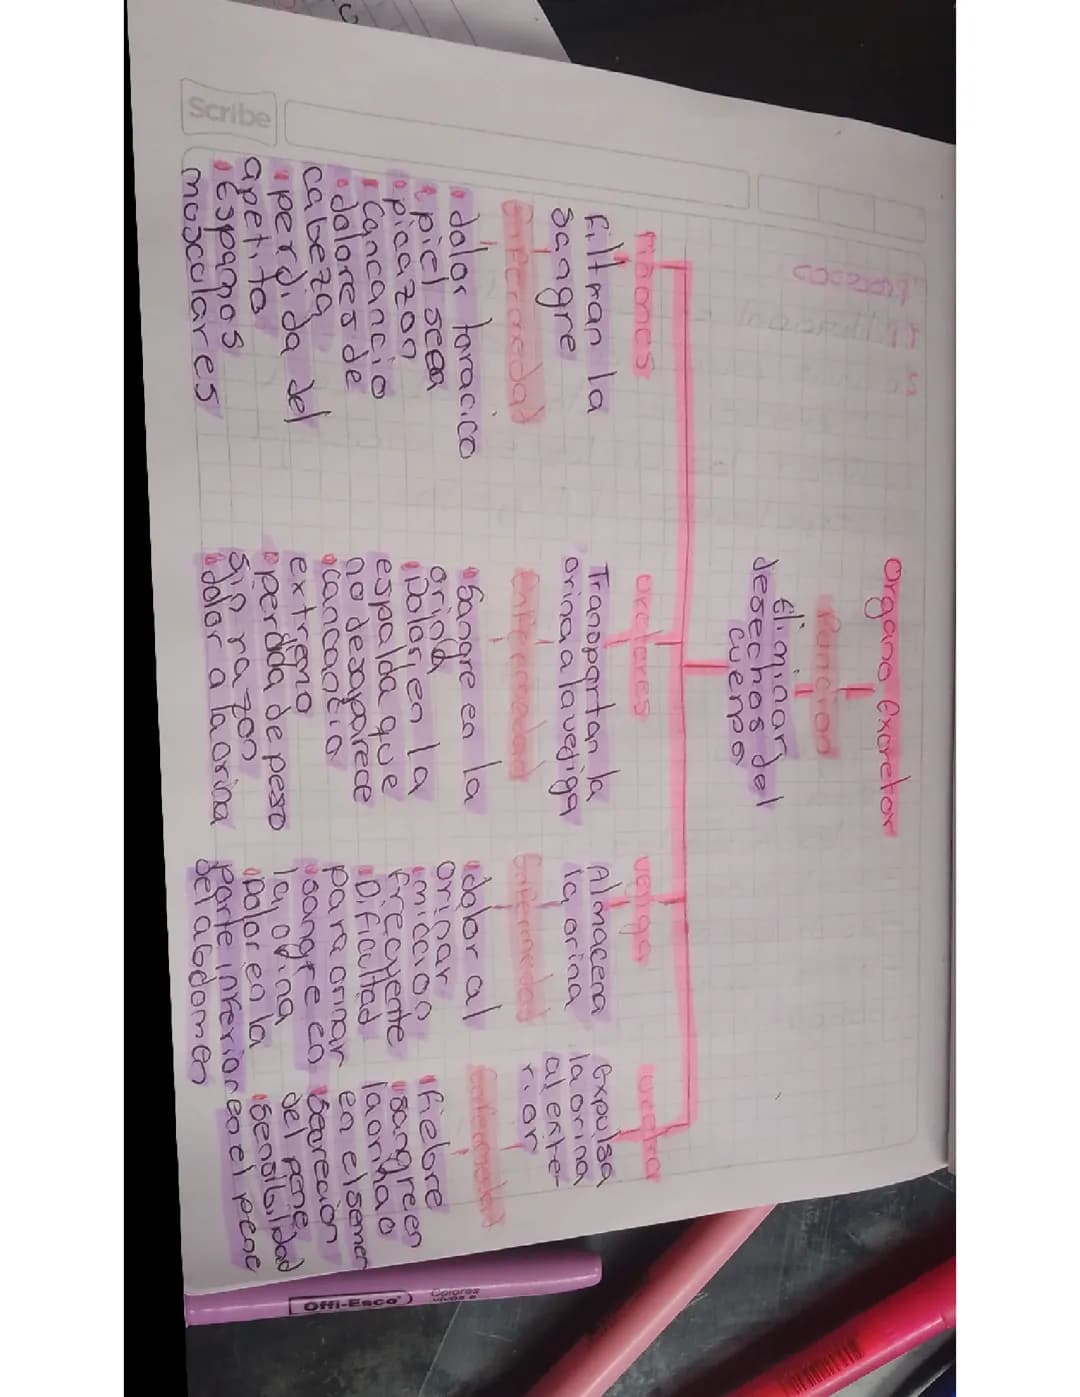 Scribe
Organo Excretor
función
Eliminar
desechos del
cuerpo
riñones
Filtran la
sangre
Enfermedad
• dolor toracico
• piel seca
• picazon
• Cancancio
• dolores de
cabeza
• perdida del
apetito
• Espamos
musculares
ureteres
Transportan la
orina a la vejiga
Enfermedad
• Sangre en la
orina
• Dolor en la
espalda que
no desaparece
• cancancio
extremo
• perdida de peso
sin razon
• dolor a la orina
vejiga
Almacena
la orina
Enfermedad
• dolor al
orinar
• miccion
frecuente
• Dificultad
para orinar
• sangre en
la orina
• Dolor en la
parte inferior
del abdomen
uretra
Expulsa
la orina
al exte-
rior
Enfermedad
• fiebre
• sangre en
la orina o
en el semen
• secreción
del pene
• sensibilidad
en el pene
Offi-Esco
Colores
vivos